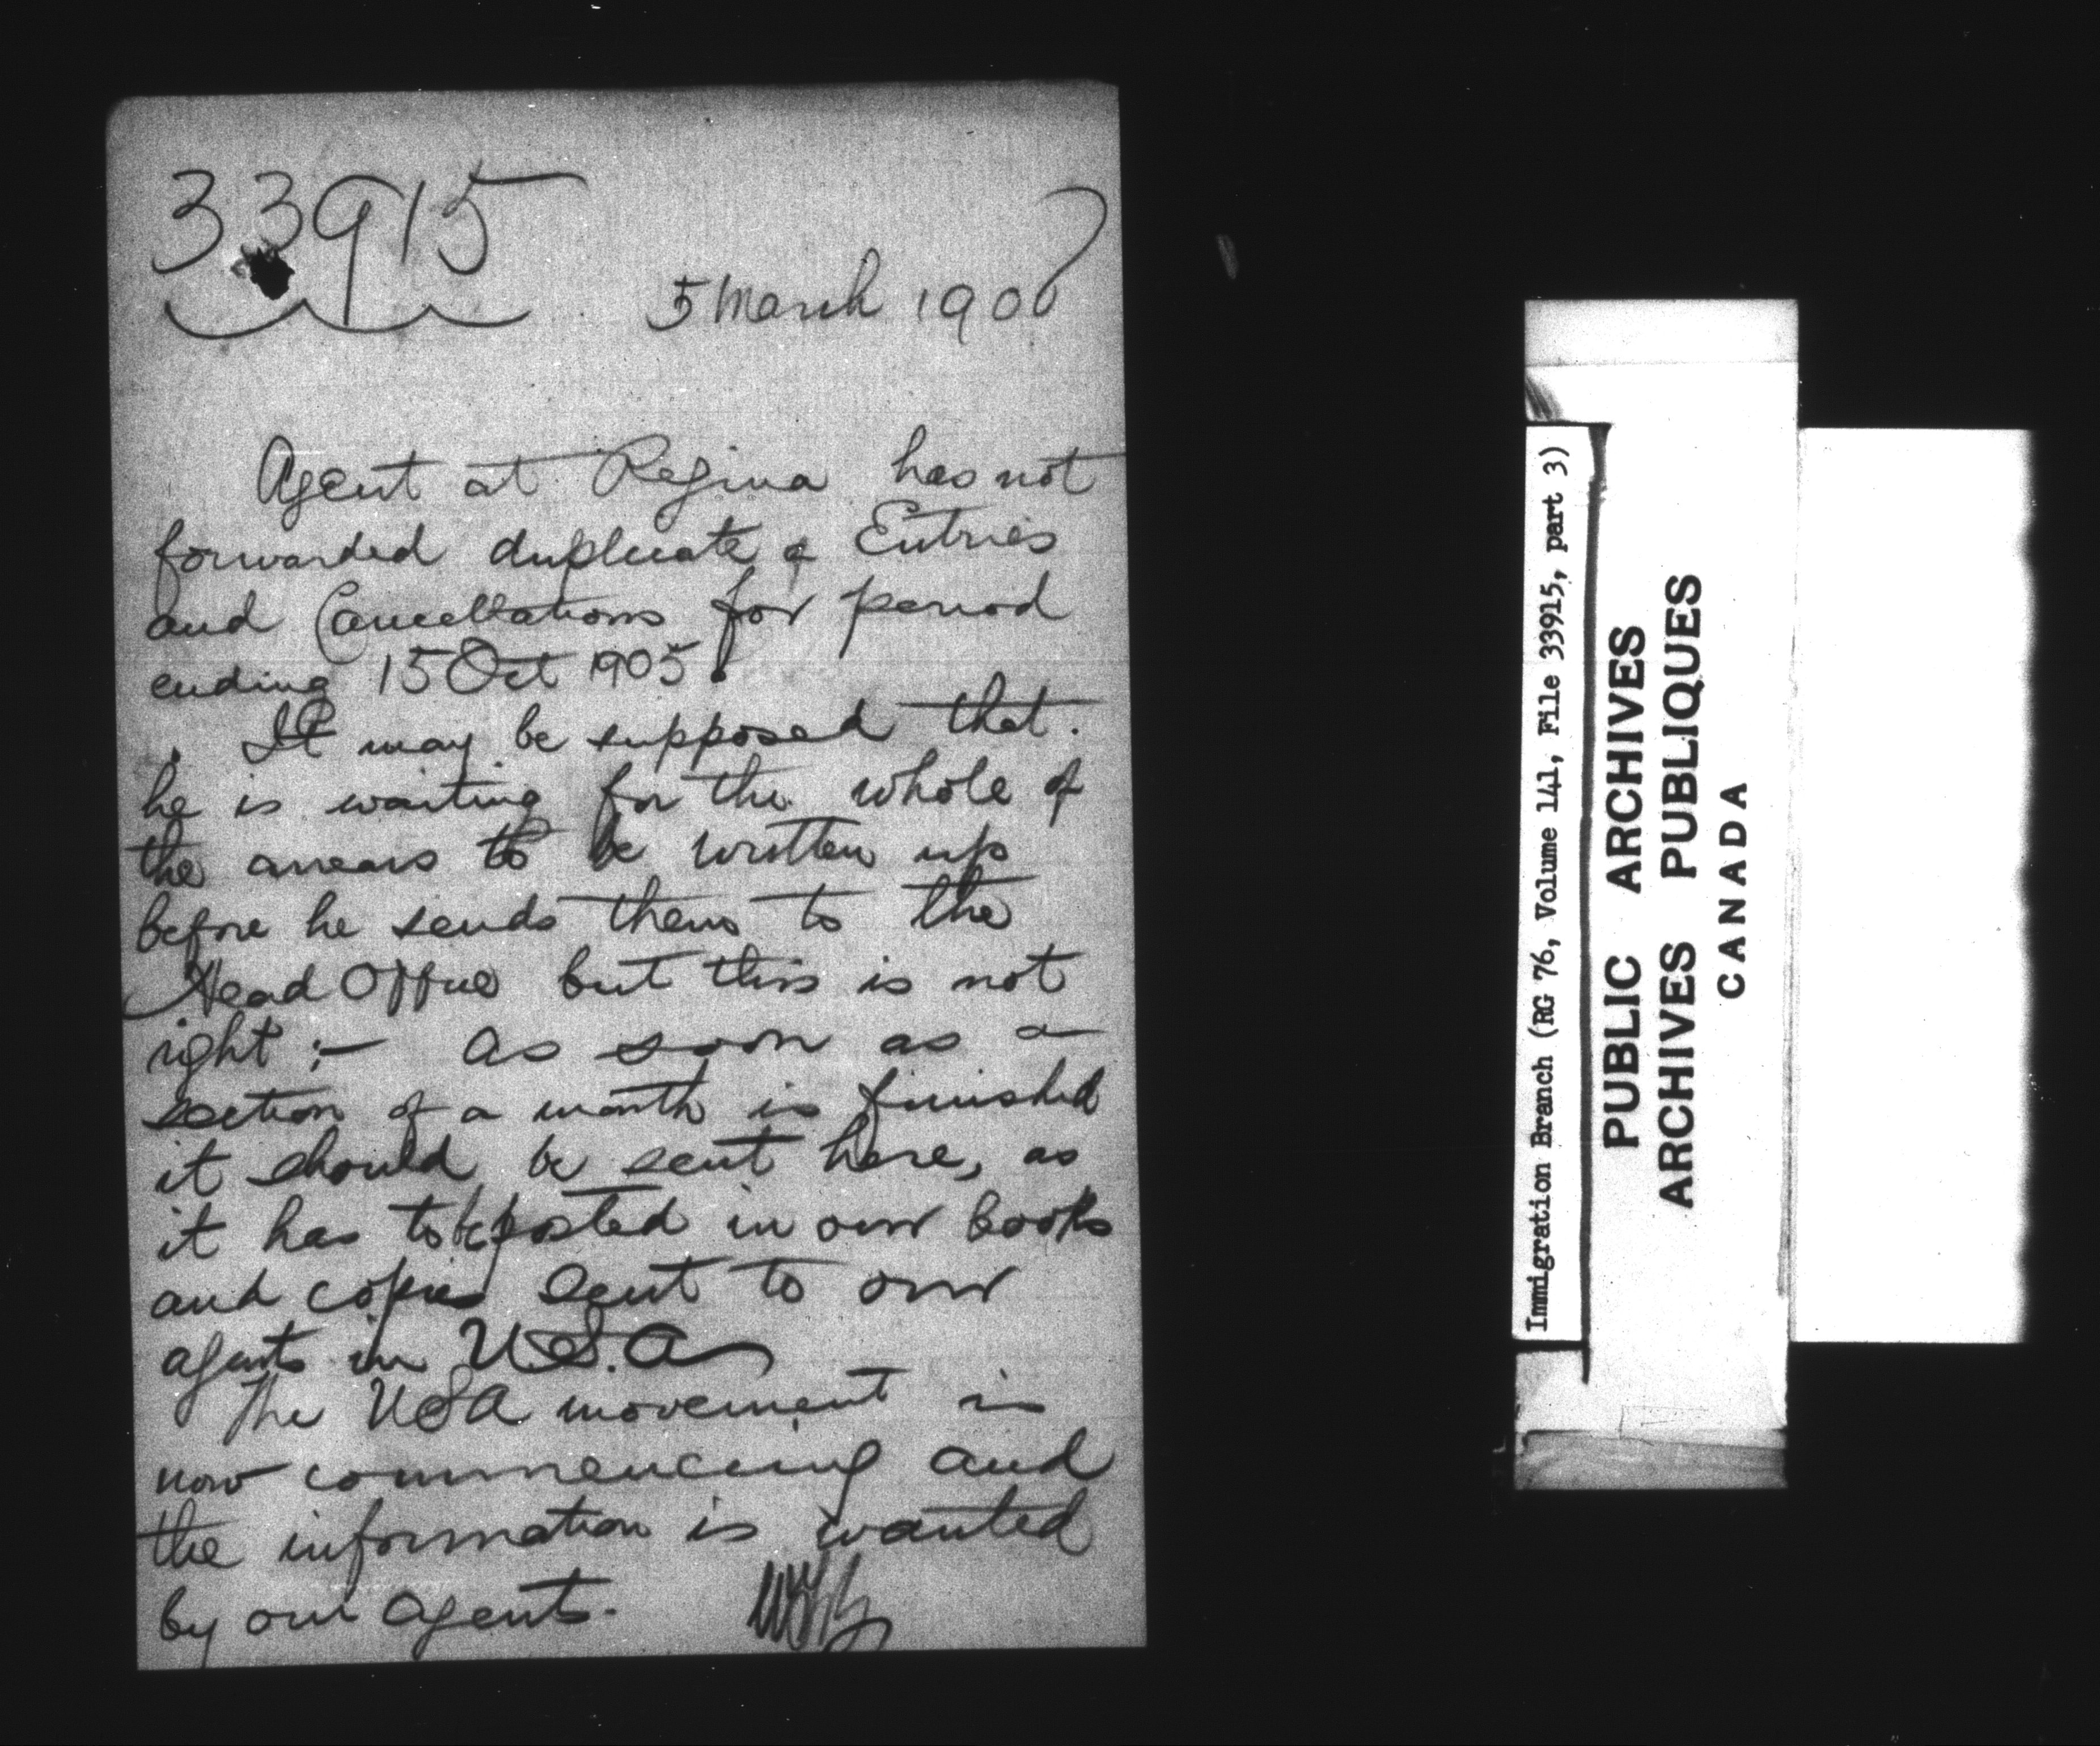 33915
5 March 1906
Agent at Regina has not
forwarded duplicate of Entries
and Cancellations for period
ending 15 Oct 1905.
It may be supposed that
he is waiting for the whole of
the arrears to be written up
before he sends them to the
Head Office but this is not
right :- As soon as a
section of a month is finished
it should be sent here, as
it has to be posted in our books
and copies sent to our
agents in U.S.A
The USA movement is
now commencing and
the information is wanted
by our agents.
Immigration Branch (RG 76, Volume 141, File 33915, part 3)
PUBLIC ARCHIVES
ARCHIVES PUBLIQUES
CANADA